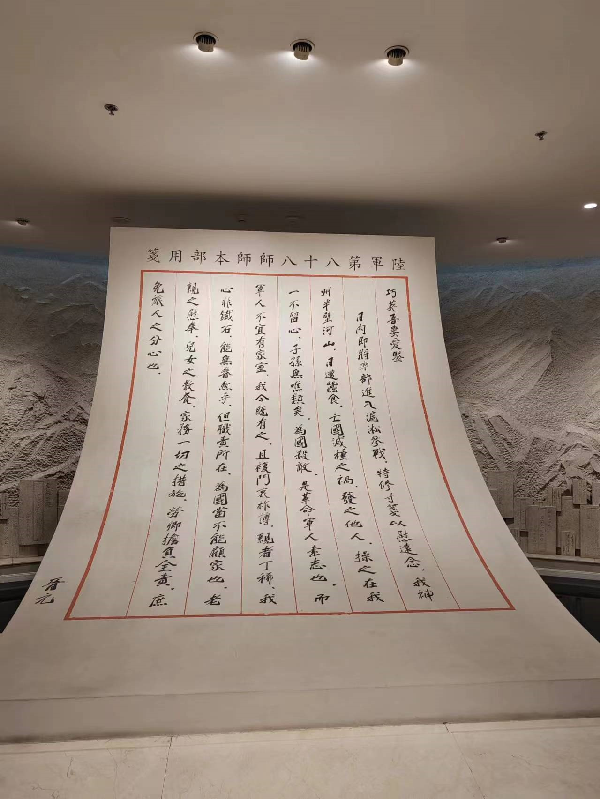 陸軍第八十八師師本部用箋
巧英吾妻愛鑒
日內即將率部進入滬淞參戰，特修寸箋以慰遠念，我神
州半壁河山，日遭蠶食，亡國滅種之禍，發之他人，操之在我
一不留心，子孫無噍類矣，為國殺敵，是革命軍人素志也，而
軍人不宜有家室，我今既有之，且復門衰祚薄，親者丁稀，我
心非鐵石，能無眷然乎，但職責所在，為國當不能顧家也，老
親之慰奉，兒女之教養，家務一切之措施，勞卿擔負全責，庶
免旅人之分心也，
晉元